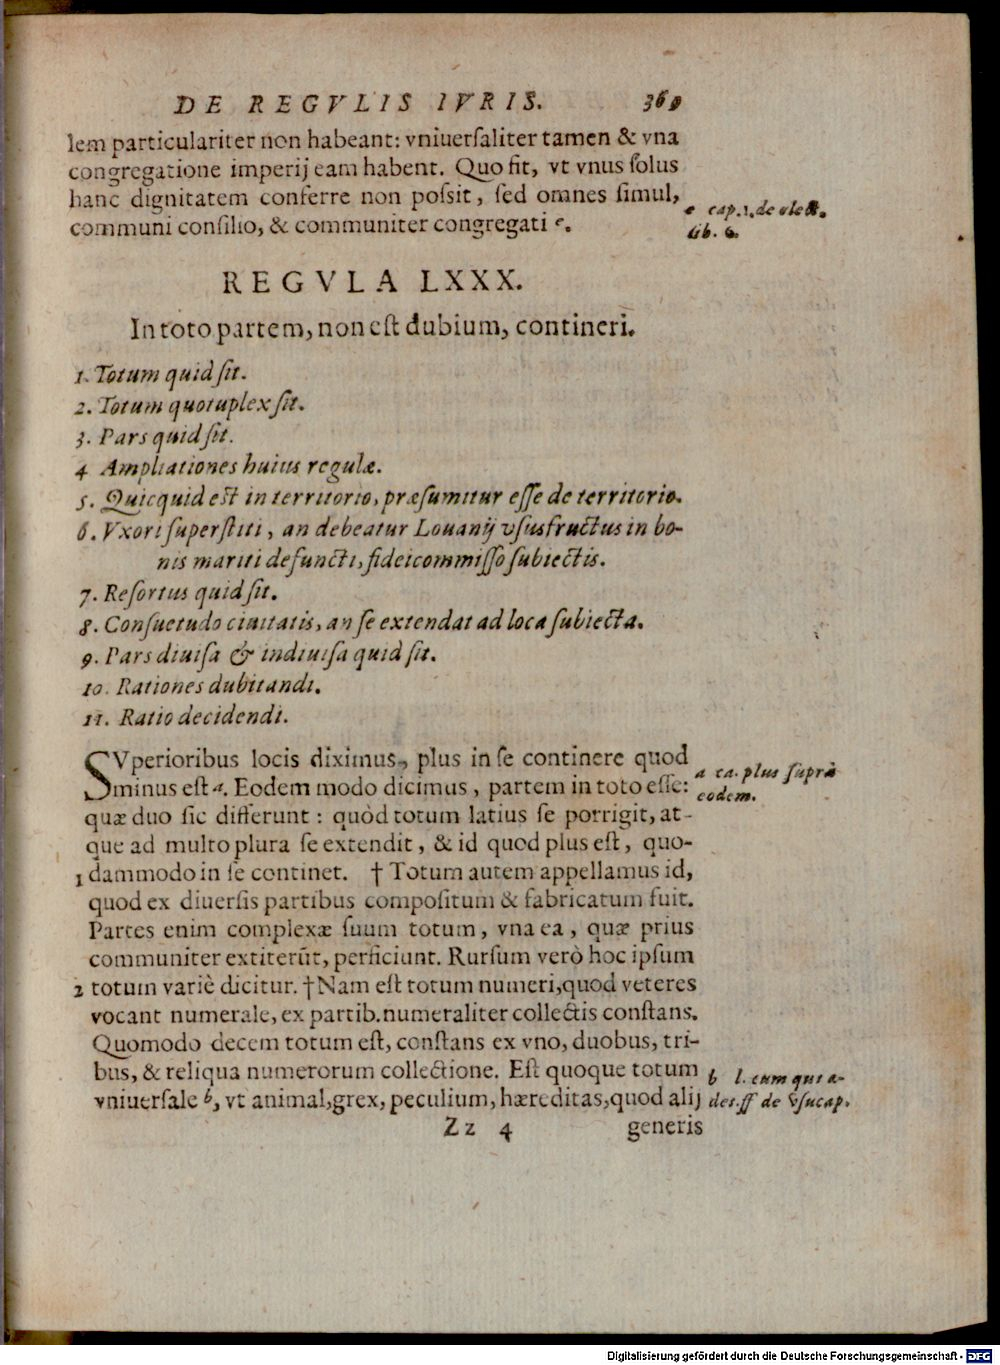 DE REGVLIS IVRIS. 369
lem particulariter non habeant: vniuerſaliter tamen & vna
congregatione imperij eam habent. Quo fit, vt vnus ſolus
hanc dignitatem conferre non poſsit, ſed omnes ſimul,
communi conſilio, & communiter congregati e.
e cap. 1. de elect.
lib. 6.
REGVLA LXXX.
In toto partem, non eſt dubium, contineri.
1. Totum quid ſit.
2. Totum quotuplex ſit.
3. Pars quid ſit.
4 Ampliationes huius regulæ.
5. Quicquid est in territorio, præſumitur eſſe de territorio.
6. Vxori ſuperſtiti, an debeatur Louanij vſusfructus in bo-
nis mariti defuncti, fideicommiſſo ſubiectis.
7. Reſortus quid ſit.
8. Conſuetudo ciuitatis, an ſe extendat ad loca ſubiecta.
9. Pars diuiſa & indiuiſa quid ſit.
10. Rationes dubitandi.
11. Ratio decidendi.
SVperioribus locis diximus, plus in ſe continere quod
minus eſt a. Eodem modo dicimus, partem in toto eſſe:
a ca. plus ſuprà
eodem.
quæ duo ſic differunt: quòd totum latius ſe porrigit, at-
que ad multo plura ſe extendit, & id quod plus eſt, quo-
1 dammodo in ſe continet. † Totum autem appellamus id,
quod ex diuerſis partibus compoſitum & fabricatum fuit.
Partes enim complexæ ſuum totum, vna ea, quæ prius
communiter extiterũt, perficiunt. Rurſum verò hoc ipſum
2 totum variè dicitur. † Nam eſt totum numeri, quod veteres
vocant numerale, ex partib. numeraliter collectis conſtans.
Quomodo decem totum eſt, conſtans ex vno, duobus, tri-
bus, & reliqua numerorum collectione. Eſt quoque totum
vniuerſale b, vt animal, grex, peculium, hæreditas, quod alij
b l. eum qui æ-
des. ff de vſucap.
Zz 4 generis
Digitalisierung gefördert durch die Deutsche Forschungsgemeinschaft - DFG